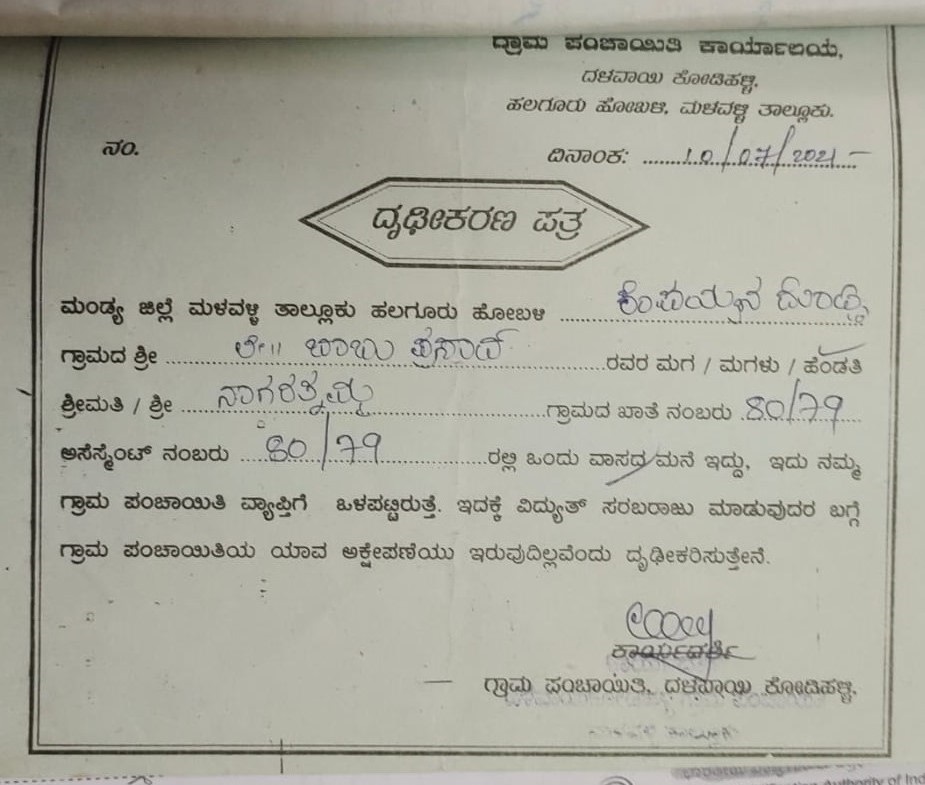 ಗ್ರಾಮ ಪಂಚಾಯಿತಿ ಕಾರ್ಯಾಲಯ,
ದಳವಾಯಿ ಕೋಡಿಹಳ್ಳಿ,
ಹಲಗೂರು ಹೋಬಳಿ, ಮಳವಳ್ಳಿ ತಾಲ್ಲೂಕು.
ನಂ. ದಿನಾಂಕ: 10/07/2021
ದೃಢೀಕರಣ ಪತ್ರ
ಮಂಡ್ಯ ಜಿಲ್ಲೆ ಮಳವಳ್ಳಿ ತಾಲ್ಲೂಕು ಹಲಗೂರು ಹೋಬಳಿ
ಗ್ರಾಮದ ಶ್ರೀ ಲೇ|| ಬಾಬು ಪ್ರಸಾದ್ ರವರ ಮಗ / ಮಗಳು / ಹೆಂಡತಿ
ಶ್ರೀಮತಿ / ಶ್ರೀ ನಾಗರತ್ನಮ್ಮ ಗ್ರಾಮದ ಖಾತೆ ನಂಬರು 80/79
ಅಸೆಸ್ಮೆಂಟ್ ನಂಬರು 80/79 ರಲ್ಲಿ ಒಂದು ವಾಸದ ಮನೆ ಇದ್ದು, ಇದು ನಮ್ಮ
ಗ್ರಾಮ ಪಂಚಾಯಿತಿ ವ್ಯಾಪ್ತಿಗೆ ಒಳಪಟ್ಟಿರುತ್ತೆ. ಇದಕ್ಕೆ ವಿದ್ಯುತ್ ಸರಬರಾಜು ಮಾಡುವುದರ ಬಗ್ಗೆ
ಗ್ರಾಮ ಪಂಚಾಯಿತಿಯ ಯಾವ ಅಕ್ಷೇಪಣೆಯು ಇರುವುದಿಲ್ಲವೆಂದು ದೃಢೀಕರಿಸುತ್ತೇನೆ.
ಕಾರ್ಯದರ್ಶಿ
ಗ್ರಾಮ ಪಂಚಾಯಿತಿ, ದಳವಾಯಿ ಕೋಡಿಹಳ್ಳಿ.
Authority of Ind